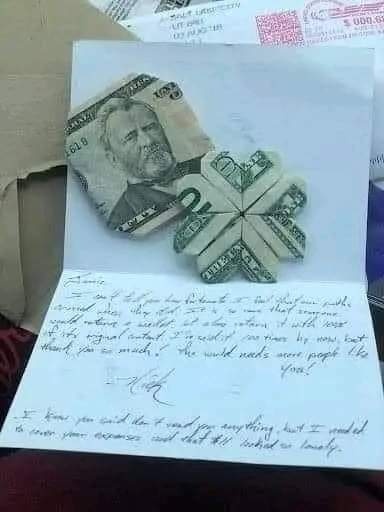 SALT LAKE CITY
UT 841
03 AUG '18
50
I can't tell you how fortunate I feel that our paths
crossed when they did. It is so rare that someone
would return a wallet, let alone return it with 100%
of its original content. I've said it 100 times by now, but
thank you so much! The world needs more people like
you!
-Nick
I know you said don't send you anything, but I needed
to cover your expenses and that $11 looked so lonely.